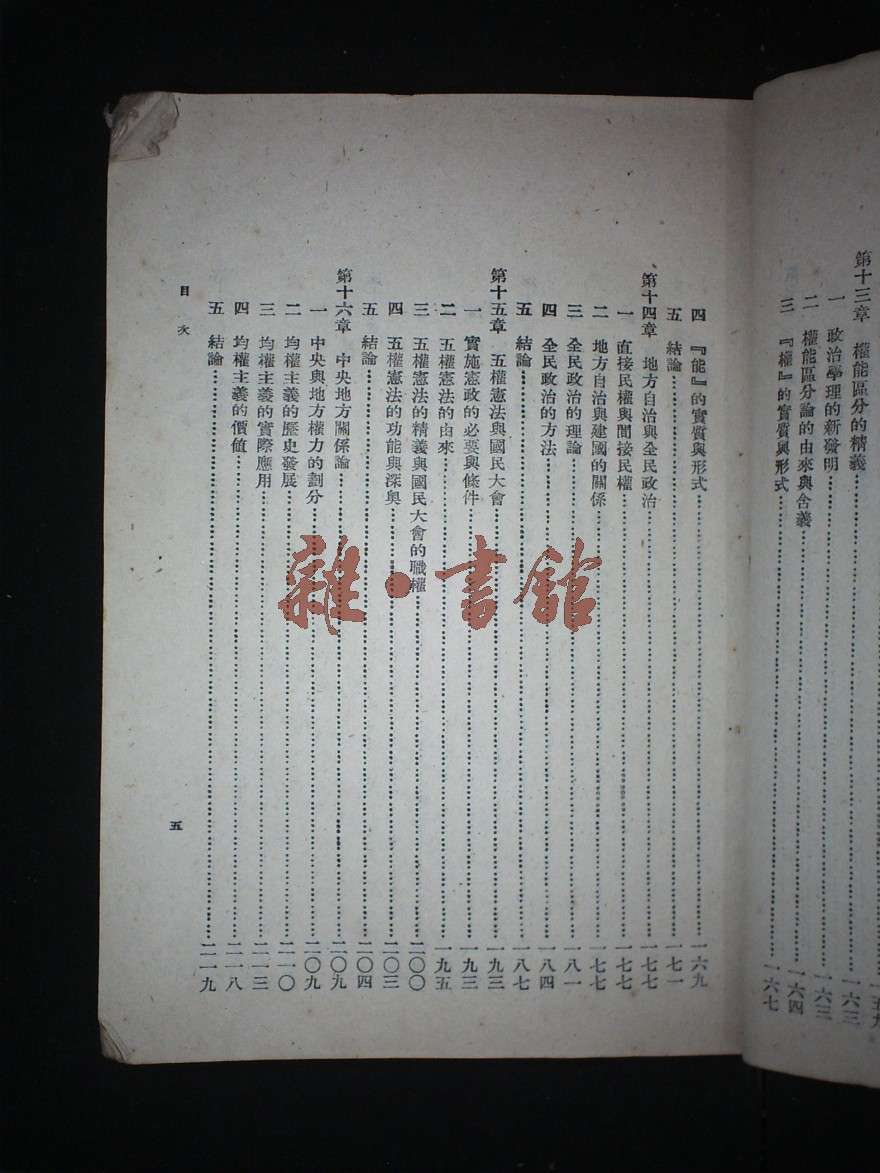 第十三章 權能區分的精義……一六三
一 政治學理的新發明……一六三
二 權能區分論的由來與含義……一六四
三 『權』的實質與形式……一六七
四 『能』的實質與形式……一六九
五 結論……一七一
第十四章 地方自治與全民政治……一七七
一 直接民權與間接民權……一七七
二 地方自治與建國的關係……一七七
三 全民政治的理論……一八一
四 全民政治的方法……一八四
五 結論……一八七
第十五章 五權憲法與國民大會……一九三
一 實施憲政的必要與條件……一九三
二 五權憲法的由來……一九五
三 五權憲法的精義與國民大會的職權……二〇〇
四 五權憲法的功能與深奥……二〇三
五 結論……二〇四
第十六章 中央地方關係論……二〇九
一 中央與地方權力的劃分……二〇九
二 均權主義的歷史發展……二一〇
三 均權主義的實際應用……二一三
四 均權主義的價値……二一八
五 結論……二一九
目次
五
雜·書館